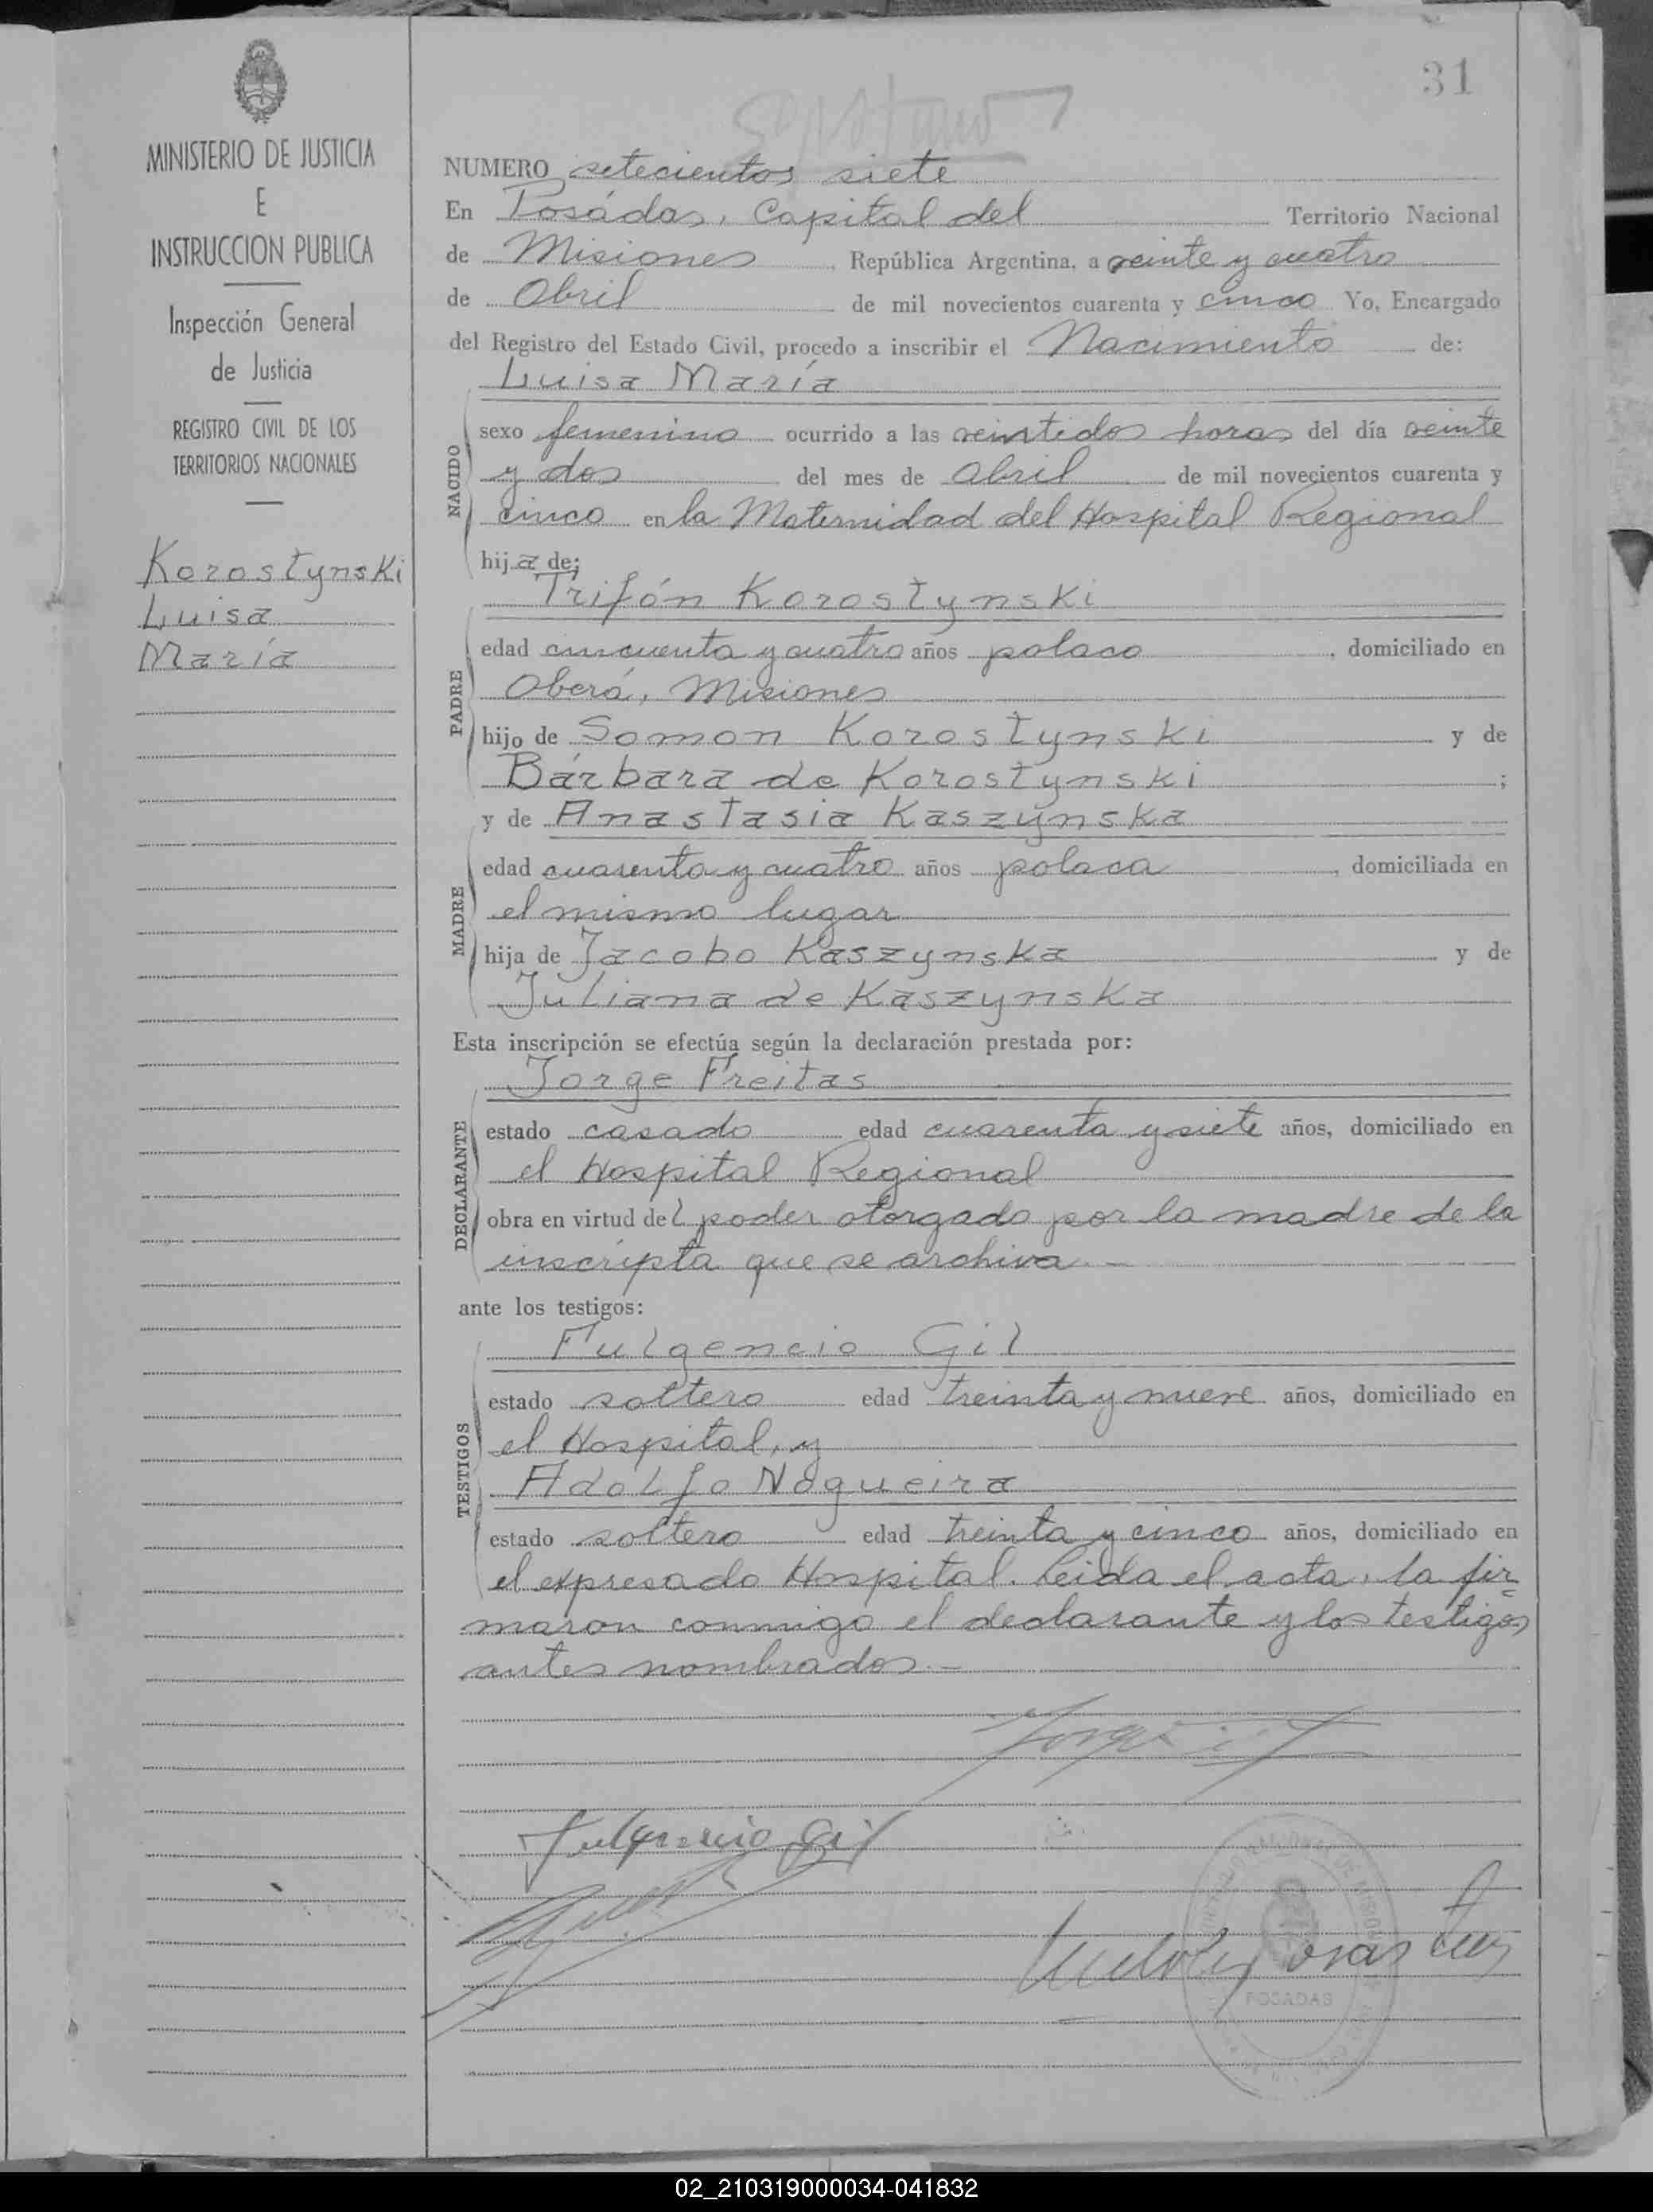 31
MINISTERIO DE JUSTICIA
E
INSTRUCCION PUBLICA
Inspección General
de Justicia
REGISTRO CIVIL DE LOS
TERRITORIOS NACIONALES
Korostynski
Luisa
María
NUMERO setecientos siete
En Posádas, Capital del Territorio Nacional
de Misiones República Argentina, a veinte y cuatro
de Abril de mil novecientos cuarenta y cinco Yo, Encargado
del Registro del Estado Civil, procedo a inscribir el Nacimiento de:
Luisa María
NACIDO
sexo femenino ocurrido a las veintidos horas del día veinte
y dos del mes de Abril de mil novecientos cuarenta y
cinco en la Maternidad del Hospital Regional
hija de:
Trifón Korostynski
PADRE
edad cincuenta y cuatro años polaco, domiciliado en
Oberá, Misiones
hijo de Somon Korostynski y de
Bárbara de Korostynski;
y de Anastasia Kaszynska
MADRE
edad cuarenta y cuatro años polaca, domiciliada en
el mismo lugar
hija de Jacobo Kaszynska y de
Juliana de Kaszynska
Esta inscripción se efectúa según la declaración prestada por:
Jorge Freitas
DECLARANTE
estado casado edad cuarenta y siete años, domiciliado en
el Hospital Regional
obra en virtud del poder otorgado por la madre de la
inscripta que se archiva.—
ante los testigos:
Fulgencio Gil
TESTIGOS
estado soltero edad treinta y nueve años, domiciliado en
el Hospital, y
Adolfo Nogueira
estado soltero edad treinta y cinco años, domiciliado en
el expresado Hospital. Leida el acta, la fir=
maron conmigo el declarante y los testigos
antes nombrados.—
Fulgencio Gil
POSADAS
02_210319000034-041832